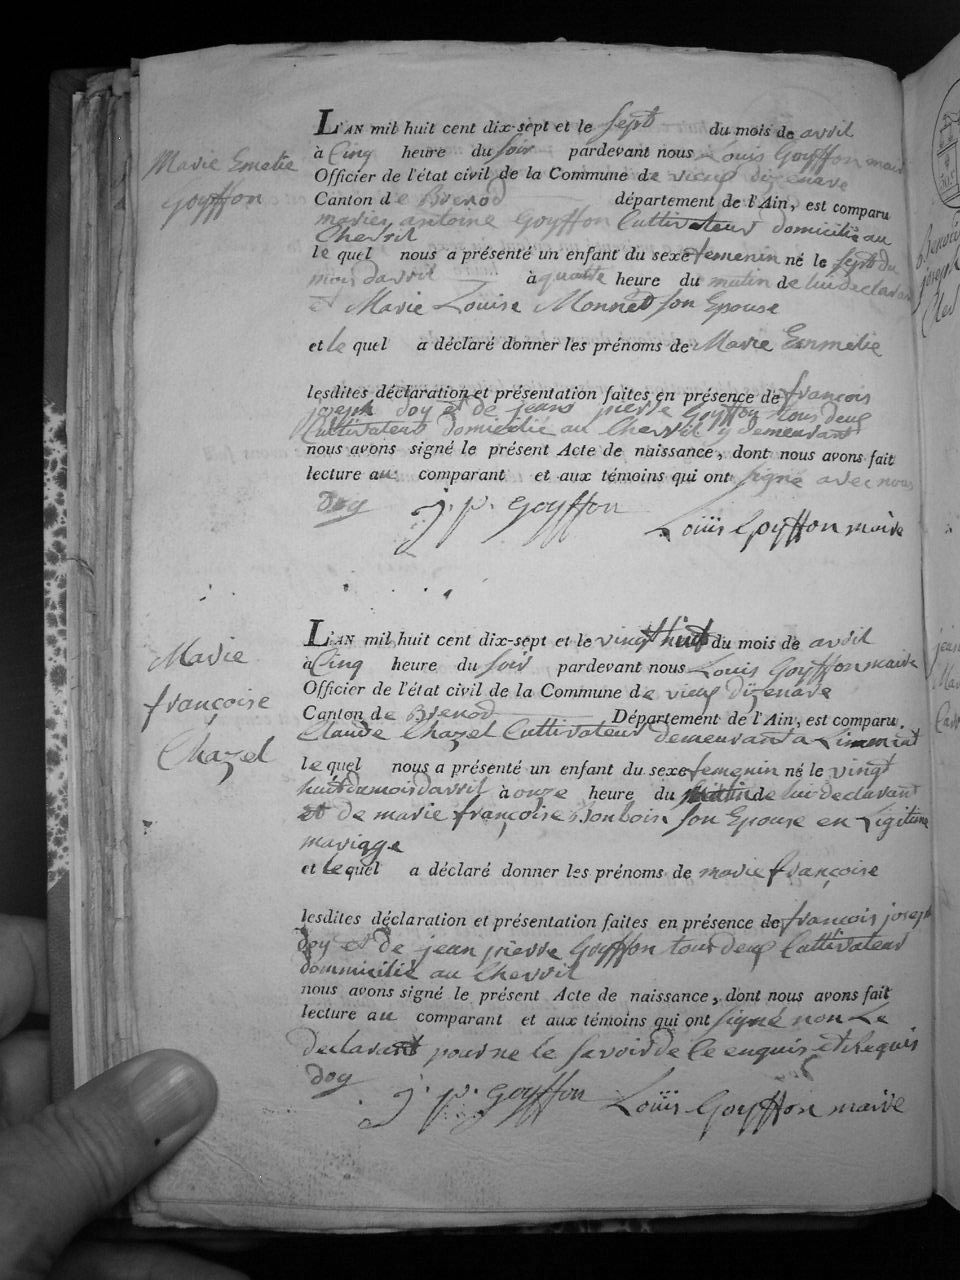 Marie Emelie
goyffon
L'AN mil huit cent dix-sept et le sept du mois de avril
à Cinq heure du soir pardevant nous Louis Goyffon maire
Officier de l'état civil de la Commune de vieux dizenave
Canton de Brenod département de l'Ain, est comparu
marier antoine goyffon Cultivateur domicilié au
Chevril
le quel nous a présenté un enfant du sexe femenin né le sept du
mois davril à quatre heure du matin de lui declarant
et Marie Louise Monnet son Epouse
et le quel a déclaré donner les prénoms de Marie Emelie
lesdites déclaration et présentation faites en présence de françois
joseph doy et de jean pierre Goyffon tous deux
Cultivateur domicilié au Chevril y demeurant
nous avons signé le présent Acte de naissance, dont nous avons fait
lecture au comparant et aux témoins qui ont signé avec nous
doy j. p. goyffon Louis Goyffon maire
Marie
françoise
Chazel
L'AN mil huit cent dix-sept et le vingt huit du mois de avril
à Cinq heure du soir pardevant nous Louis Goyffon maire
Officier de l'état civil de la Commune de vieux dizenave
Canton de Brenod Département de l'Ain, est comparu
Claude Chazel Cultivateur demeurant a
le quel nous a présenté un enfant du sexe femenin né le vingt
huit du mois davril à onze heure du matin de lui declarant
et de marie françoise son Epouse en Ligitime
mariage
et le quel a déclaré donner les prénoms de marie françoise
lesdites déclaration et présentation faites en présence de françois joseph
doy et de jean pierre Goyffon tous deux Cultivateur
dommicilié au Chevril
nous avons signé le présent Acte de naissance, dont nous avons fait
lecture au comparant et aux témoins qui ont signé non Le
declarent pour ne le savoir de ce enquis et Requis
doy j. p. goyffon Louis Goyffon maire